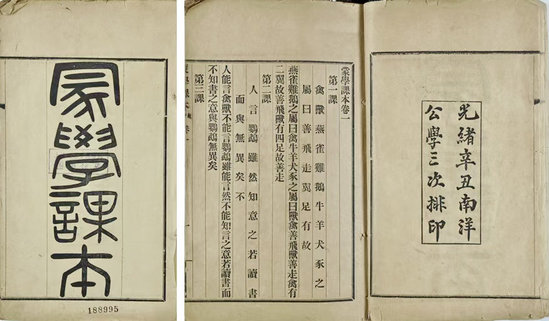 蒙學課本
188995
蒙學課本卷一
第一課
禽獸燕雀雞鵝牛羊犬豕之
屬曰善飛走翼足有故
燕雀雞鵝之屬曰禽牛羊犬豕之屬曰獸禽善飛獸善走禽有
二翼故善飛獸有四足故善走
第二課
人言鸚鵡雖然知意之若讀書
而與無異矣不
人能言禽獸不能言鸚鵡雖能言然不能知言之意若讀書而
不知書之意與鸚鵡無異矣
第三課
光緒辛丑南洋
公學三次排印